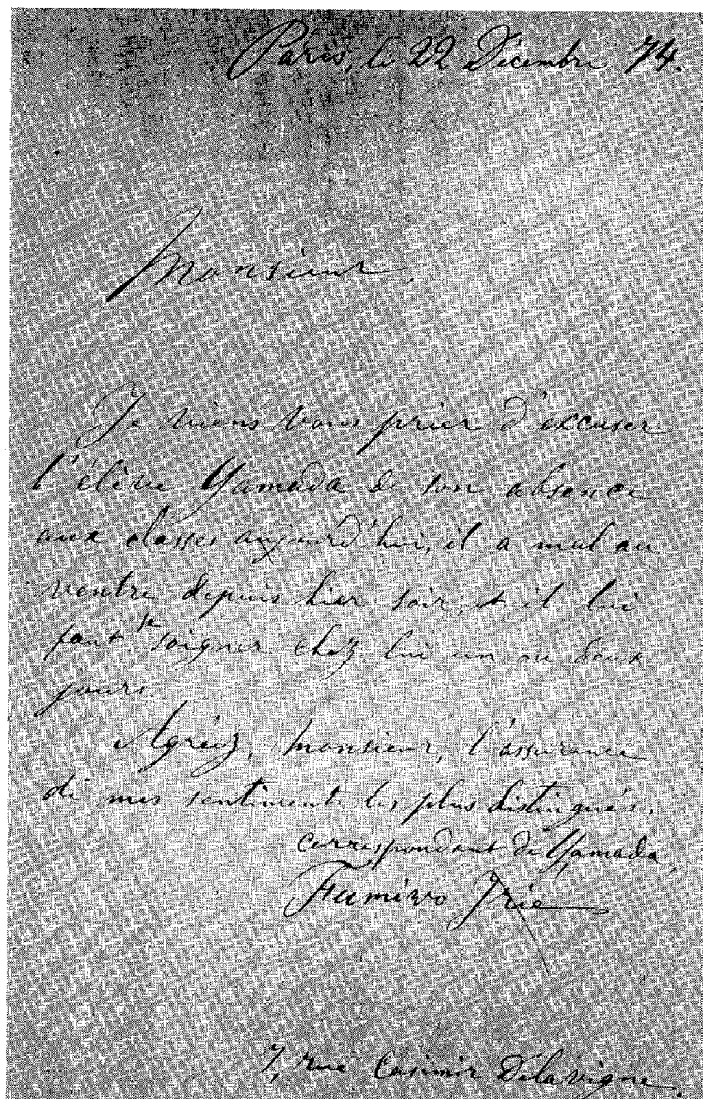 Paris, le 22 Décembre 74.
Monsieur,
Je viens vous prier d'excuser
l'élève Yamada de son absence
aux classes aujourd'hui, il a mal au
ventre depuis hier soir, et il lui
faut se soigner chez lui un ou deux
jours.
Agréez, monsieur, l'assurance
de mes sentiment les plus distingués.
correspondant de Yamada,
Fumizo Irie
7, rue Casimir Delavigne.